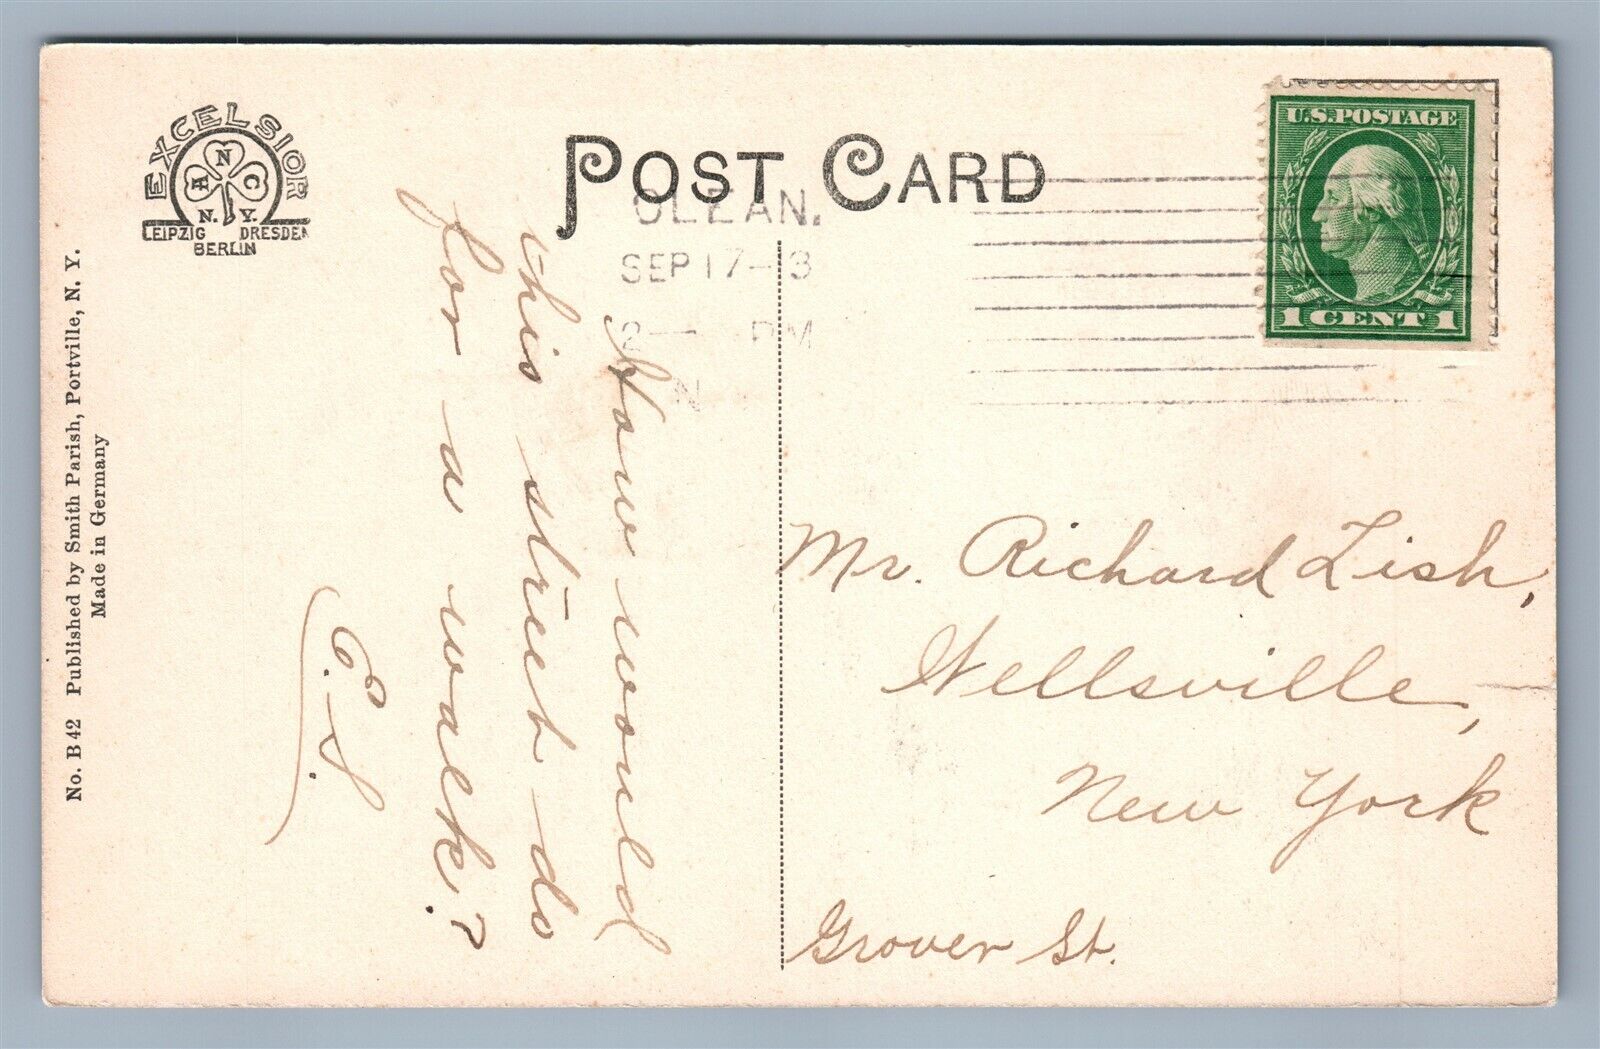 EXCELSIOR
A N C
N. Y.
LEIPZIG DRESDEN
BERLIN
POST CARD
OLEAN.
SEP 17-13
2— PM
N
U.S.POSTAGE
1 CENT 1
No. B 42 Published by Smith Parish, Portville, N. Y.
Made in Germany
How would
this street do
for a walk?
C.S.
Mr. Richard Lish,
Wellsville,
New York
Grover St.